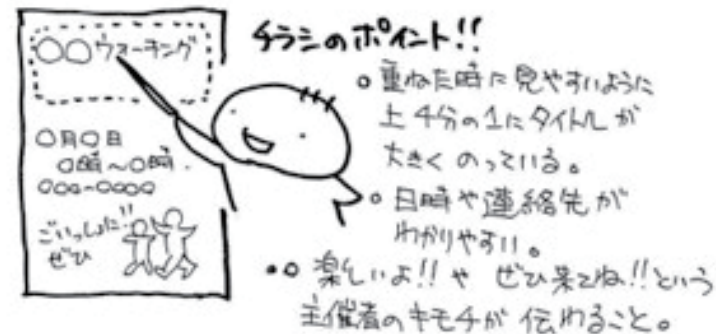 〇〇ウォーキング
〇月〇日
〇時～〇時.
〇〇〇-〇〇〇〇
ごいっしょに!!
ぜひ
チラシのポイント!!
○重ねた時に見やすいように
上4分の1にタイトルが
大きくのっている。
○日時や連絡先が
わかりやすい。
○楽しいよ!!や ぜひ来てね!!という
主催者のキモチが伝わること。